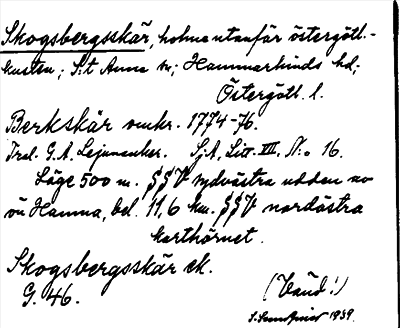 Skogsbergsskär, holme utanför östergötl.-
kusten; S:t Anna sn; Hammarkinds hd;
Östergötl. l.
Berkskär omkr. 1774-76.
Trol. G. A. Lejonancker. SjA, Litt. VIII. N:o 16.
Läge 500 m. §§V sydvästra udden av
ön Hamna, bel. 11,6 km. §§V nordöstra
karthörnet.
Skogsbergsskär ek.
G. 46.
(Vänd!)
1939.